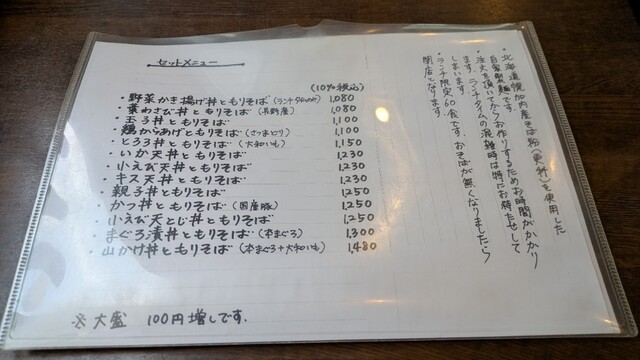 セットメニュー
(10%税込)
・野菜かき揚げ丼ともりそば(ランチタイムのみ) 1,080
・葉わさび丼ともりそば(長野産) 1,080
・玉子丼ともりそば 1,100
・鶏からあげともりそば(さつまどり) 1,100
・とろろ丼ともりそば(大和いも) 1,150
・いか天丼ともりそば 1,230
・小えび天丼ともりそば 1,230
・キス天丼ともりそば 1,230
・親子丼ともりそば 1,250
・かつ丼ともりそば(国産豚) 1,250
・小えび天とじ丼ともりそば 1,250
・まぐろ漬丼ともりそば(本まぐろ) 1,300
・山かけ丼ともりそば(本まぐろ+大和いも) 1,480
※大盛 100円増しです.
・北海道幌加内産そば粉(更科)を使用した
自家製麺です。
・注文を頂いてからお作りするためお時間がかかり
ます。ランチタイムの混雑時は特にお待たせして
しまいます。
・ランチ限定60食です。おそばが無くなりましたら
閉店となります。